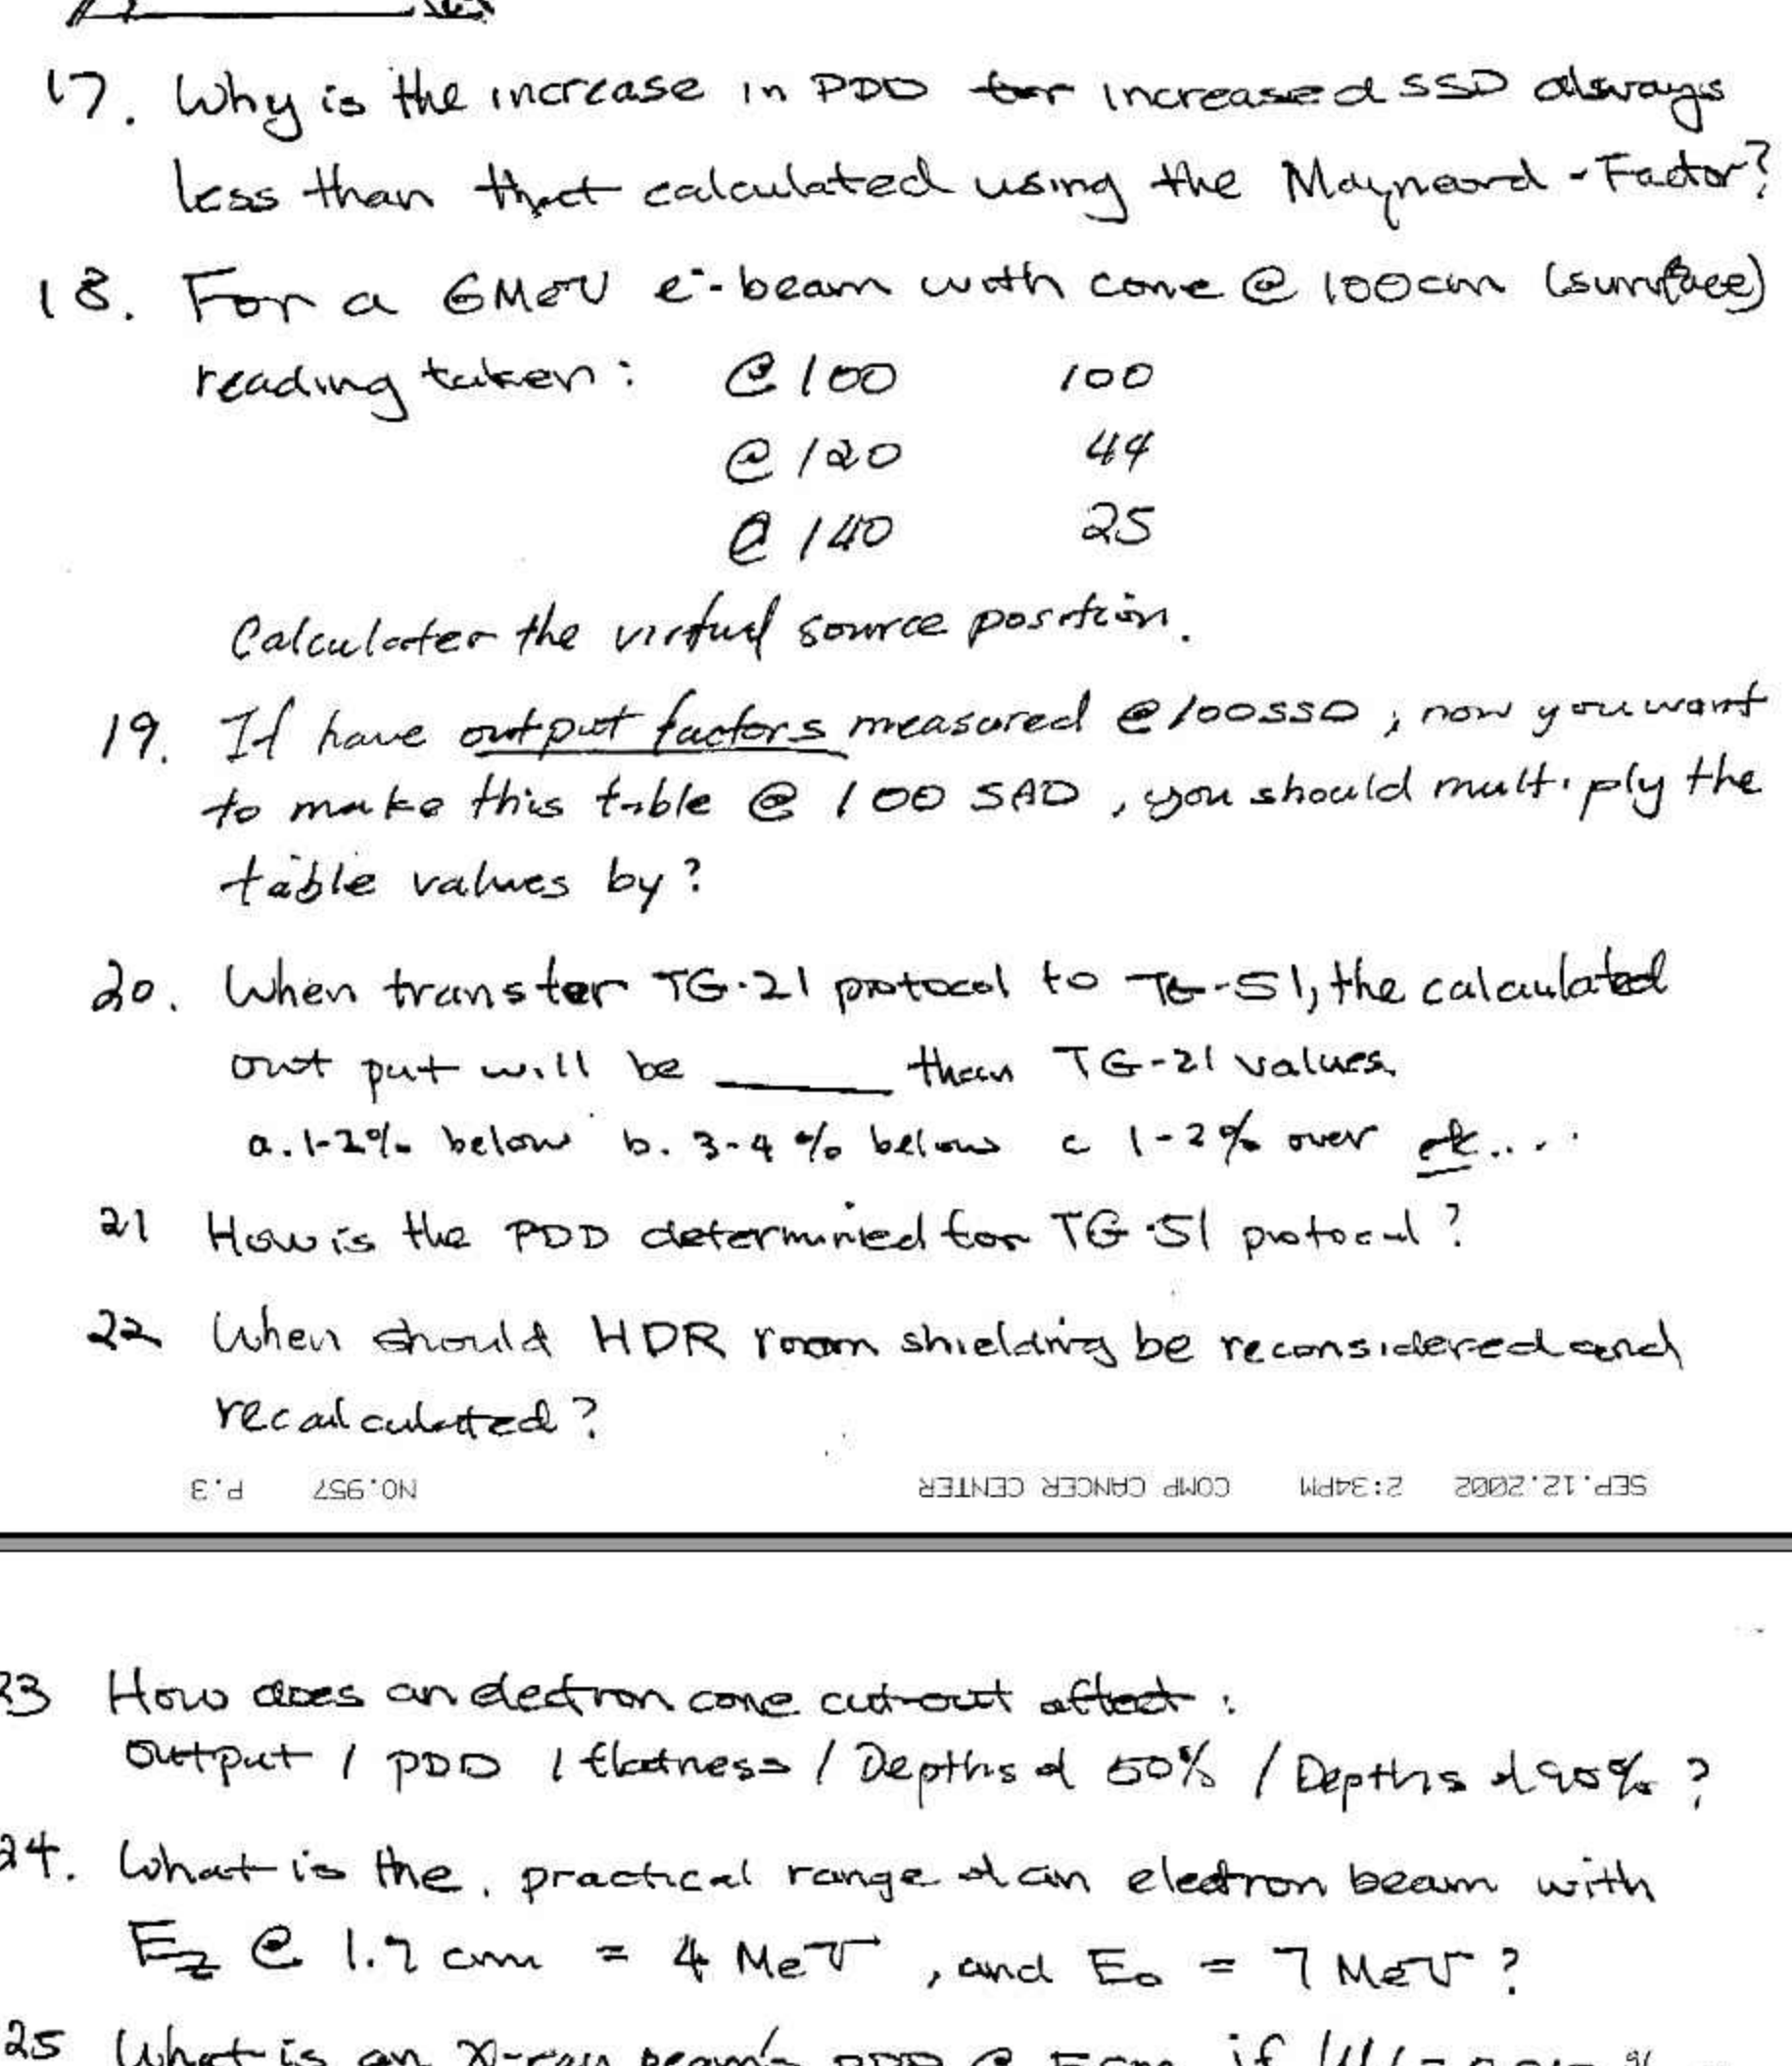 17. Why is the increase in PDD for increased SSD always
less than that calculated using the Mayneord-Factor?
18. For a 6MeV e⁻-beam with cone @ 100cm (surface)
reading taken: @ 100 100
@ 120 44
@ 140 25
Calculater the virtual source position.
19. If have output factors measured @100SSD, now you want
to make this table @ 100 SAD, you should multiply the
table values by?
20. When transfer TG-21 protocol to TG-51, the calculated
out put will be ____ than TG-21 values.
a. 1-2% below b. 3-4% below c 1-2% over etc....
21 How is the PDD determinied for TG-51 protocol?
22 When should HDR room shielding be reconsidered and
recalculated?
SEP.12.2002 2:34PM COMP CANCER CENTER NO.957 P.3
23 How does an electron cone cut-out affect:
Output / PDD / flatness / Depths of 50% / Depths of 90%?
24. What is the practical range of an electron beam with
Ez @ 1.7 cm = 4 MeV, and Eo = 7 MeV?
25 What is an X-ray beam's PDD @ 5cm if